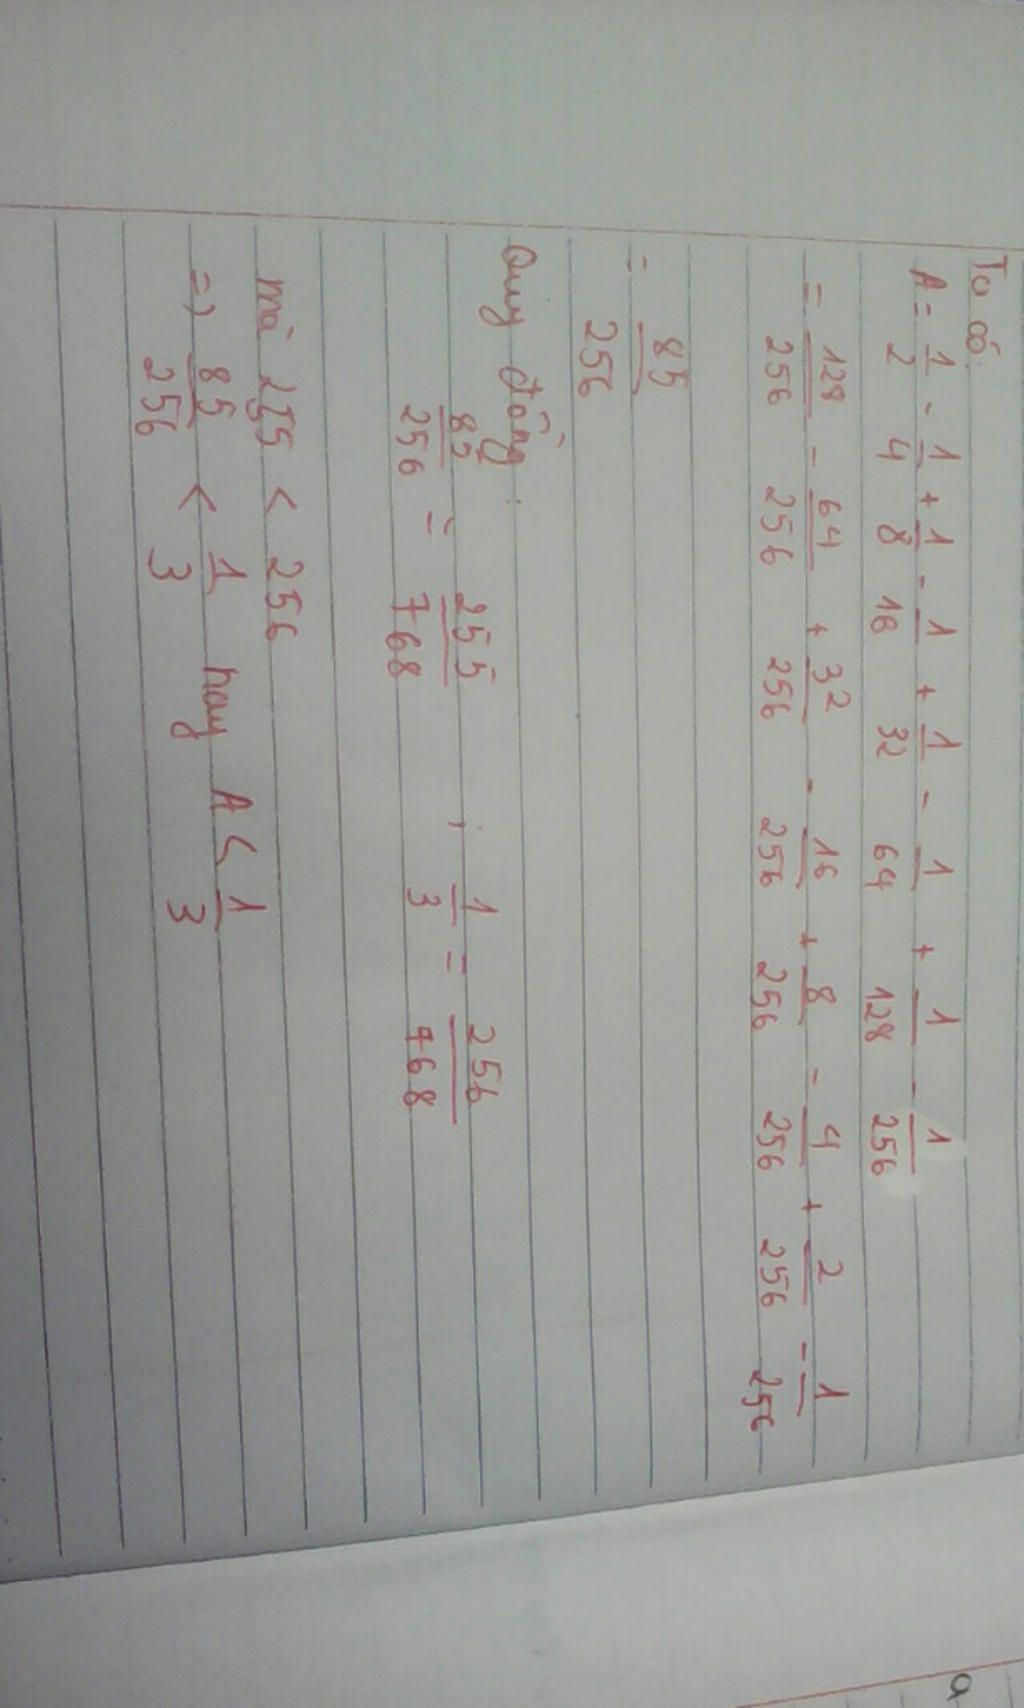 Ta có:
A = 1/2 - 1/4 + 1/8 - 1/16 + 1/32 - 1/64 + 1/128 - 1/256
= 128/256 - 64/256 + 32/256 - 16/256 + 8/256 - 4/256 + 2/256 - 1/256
= 85/256
Quy đồng:
85/256 = 255/768 ; 1/3 = 256/768
mà 255 < 256
=> 85/256 < 1/3 hay A < 1/3
a